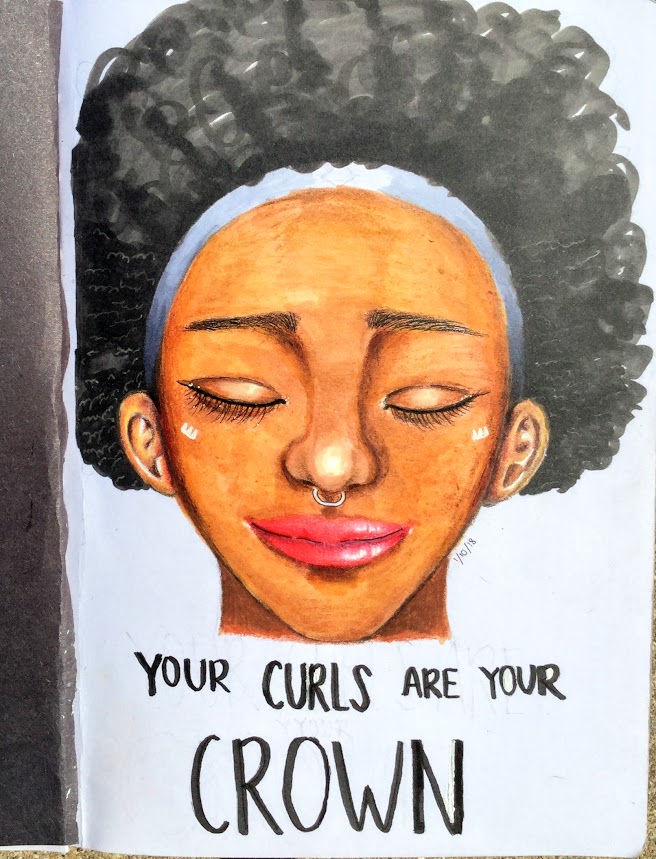 1/10/18
YOUR CURLS ARE YOUR
CROWN